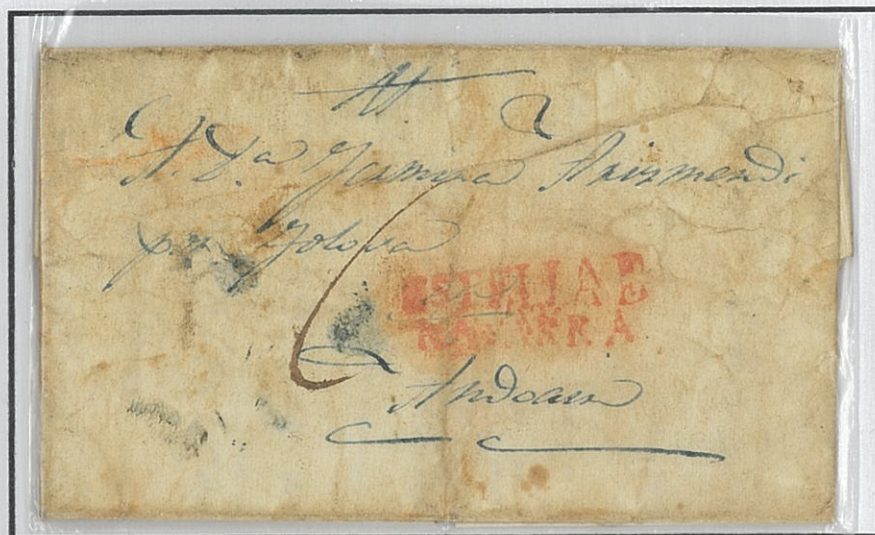 A. D.ª Fermina Arizmendi
por Tolosa
ESTELLA E
NAVARRA
Andoain